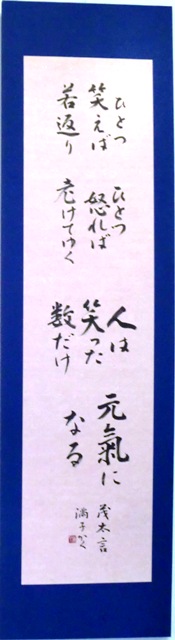 ひとつ
笑えば
若返り
ひとつ
怒れば
老けてゆく
人は
笑った
数だけ
元氣に
なる
茂木言
満子かく